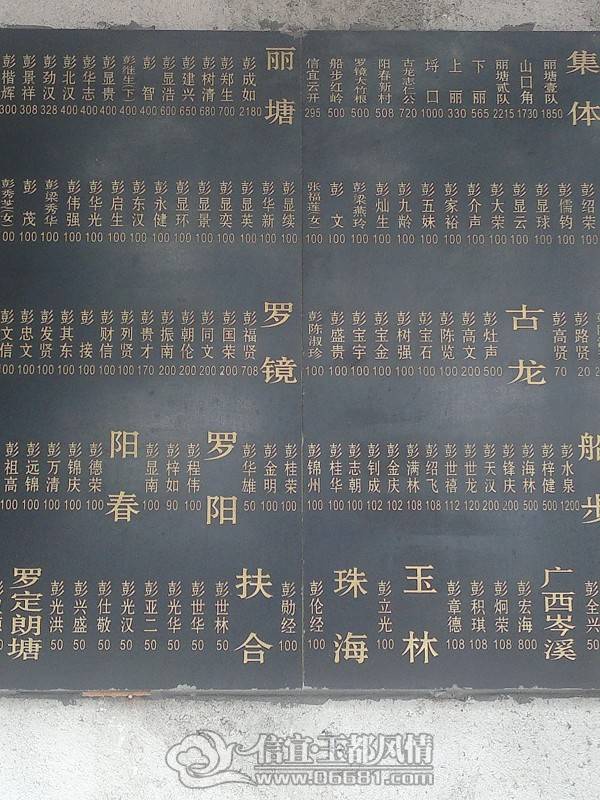 集体
丽塘壹队 1850
山口角 1730
丽塘贰队 2215
下丽 565
上丽 330
埒口 1000
古龙忠仁公 720
阳春新村 508
罗镜大竹根 500
船步红岭 500
信宜云开 295
丽塘
彭成如 2180
彭郑生 700
彭树清 680
彭建兴 650
彭显浩 600
彭智 500
彭显贵 400
彭华志 400
彭北汉 400
彭劲汉 328
彭景祥 308
彭楷辉 300
彭绍荣 100
彭儒钧 100
彭显球 100
彭显云 100
彭大荣 100
彭介声 100
彭家裕 100
彭五妹 100
彭九龄 100
彭灿生 100
彭梁燕玲 100
彭文 100
张福莲(女) 100
彭显续 100
彭华新 100
彭显英 100
彭显奕 100
彭显景 100
彭显环 100
彭永健 100
彭东汉 100
彭启生 100
彭华光 100
彭伟强 100
彭梁秀华 100
彭茂 100
彭秀芝(女) 100
彭路贤 20
彭高贤 70
古龙
彭灶声 500
彭高文 200
彭陈览 200
彭宝石 100
彭树强 100
彭宝金 100
彭宝宇 100
彭盛贵 100
彭陈淑珍 100
罗镜
彭福贤 708
彭国荣 200
彭同文 200
彭朝伦 200
彭振南 200
彭贵才 170
彭列贤 100
彭财信 100
彭接 100
彭其东 100
彭发贤 100
彭忠文 100
彭文信 100
船步
彭水泉 1200
彭梓健 500
彭海林 200
彭锋庆 200
彭天汉 200
彭世龙 120
彭世禧 112
彭绍飞 108
彭满林 108
彭金庆 102
彭钊成 102
彭志朝 100
彭桂华 100
彭锦州 100
彭桂荣 100
彭金明 100
彭华雄 50
罗阳
彭程伟 100
彭梓如 90
彭显南 100
阳春
彭德荣 100
彭锦庆 100
彭万清 100
彭远锦 100
彭祖高 100
彭全兴 50
广西岑溪
彭宏海 800
彭炯荣 108
彭积琪 108
彭章德 108
玉林
彭立光 100
珠海
彭伦经 100
彭勋经 100
扶合
彭世林 50
彭世华 50
彭光华 50
彭亚二 50
彭光汉 50
彭仕敬 50
彭兴盛 50
彭光洪 50
罗定朗塘
信宜·玉都风情
www.06681.com